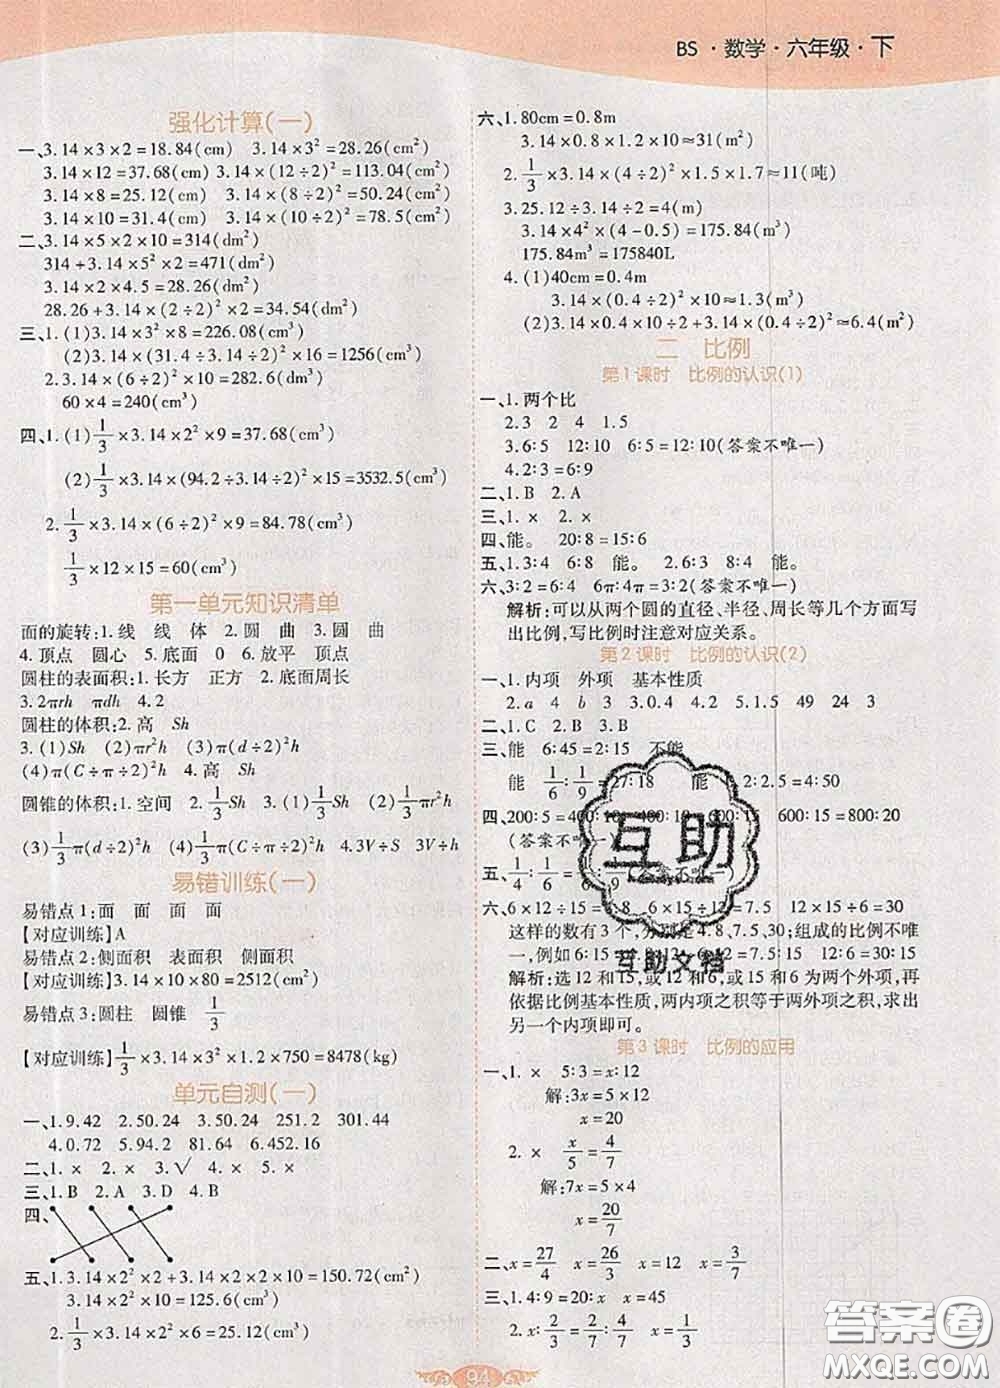 BS·数学·六年级·下
强化计算(一)
一、3.14×3×2=18.84(cm) 3.14×3²=28.26(cm²)
3.14×12=37.68(cm) 3.14×(12÷2)²=113.04(cm²)
3.14×8=25.12(cm) 3.14×(8÷2)²=50.24(cm²)
3.14×10=31.4(cm) 3.14×(10÷2)²=78.5(cm²)
二、3.14×5×2×10=314(dm²)
314+3.14×5²×2=471(dm²)
3.14×2×4.5=28.26(dm²)
28.26+3.14×(2÷2)²×2=34.54(dm²)
三、1.(1)3.14×3²×8=226.08(cm³)
(2)3.14×(31.4÷3.14÷2)²×16=1256(cm³)
2.3.14×(6÷2)²×10=282.6(dm³)
60×4=240(cm³)
四、1.(1)1/3×3.14×2²×9=37.68(cm³)
(2)1/3×3.14×(94.2÷3.14÷2)²×15=3532.5(cm³)
2.1/3×3.14×(6÷2)²×9=84.78(cm³)
1/3×12×15=60(cm³)
第一单元知识清单
面的旋转:1.线 线 体 2.圆 曲 3.圆 曲
4.顶点 圆心 5.底面 0 6.放平 顶点
圆柱的表面积:1.长方 正方 2.底面周长
3.2πrh πdh 4.2
圆柱的体积:2.高 Sh
3.(1)Sh (2)πr²h (3)π(d÷2)²h
(4)π(C÷π÷2)²h 4.高 Sh
圆锥的体积:1.空间 2.1/3Sh 3.(1)1/3Sh (2)1/3πr²h
(3)1/3π(d÷2)²h (4)1/3π(C÷π÷2)²h 4.3V÷S 3V÷h
易错训练(一)
易错点1:面 面 面 面
【对应训练】A
易错点2:侧面积 表面积 侧面积
【对应训练】3.14×10×80=2512(cm²)
易错点3:圆柱 圆锥 1/3
【对应训练】1/3×3.14×3²×1.2×750=8478(kg)
单元自测(一)
一、1.9.42 2.50.24 3.50.24 251.2 301.44
4.0.72 5.94.2 81.64 6.452.16
二、1.× 2.× 3.√ 4.× 5.×
三、1.B 2.A 3.D 4.B
四、
五、1.3.14×2²×2+3.14×2×2×10=150.72(cm²)
3.14×2²×10=125.6(cm³)
2.1/3×3.14×2²×6=25.12(cm³)
六、1.80cm=0.8m
3.14×0.8×1.2×10≈31(m²)
2.1/3×3.14×(4÷2)²×1.5×1.7≈11(吨)
3.25.12÷3.14÷2=4(m)
3.14×4²×(4-0.5)=175.84(m³)
175.84m³=175840L
4.(1)40cm=0.4m
3.14×(0.4÷2)²×10≈1.3(m³)
(2)3.14×0.4×10÷2+3.14×(0.4÷2)²≈6.4(m²)
二 比例
第1课时 比例的认识(1)
一、1.两个比
2.3 2 4 1.5
3.6∶5 12∶10 6∶5=12∶10(答案不唯一)
4.2∶3=6∶9
二、1.B 2.A
三、1.× 2.×
四、能。 20∶8=15∶6
五、1.3∶4 6∶8 能。 2.6∶3 8∶4 能。
六、3∶2=6∶4 6π∶4π=3∶2(答案不唯一)
解析:可以从两个圆的直径、半径、周长等几个方面写
出比例,写比例时注意对应关系。
第2课时 比例的认识(2)
一、1.内项 外项 基本性质
2.a 4 b 3 3.0.4 4.2 5.1.5 49 24 3
二、1.C 2.B 3.B
三、能 6∶45=2∶15 不能
能 1/6∶1/9=27∶18 能 2∶2.5=4∶50
四、200∶5=400∶10 400∶10=600∶15 600∶15=800∶20
(答案不唯一)
五、1/4∶1/6=
六、6×12÷15=4.8 6×15÷12=7.5 12×15÷6=30
这样的数有3个,分别是4.8、7.5、30;组成的比例不唯
一,例如6∶12=
解析:选12和15,或12和6,或15和6为两个外项,再
依据比例基本性质,两内项之积等于两外项之积,求出
另一个内项即可。
第3课时 比例的应用
一、1.× 5∶3=x∶12
解:3x=5×12
x=20
2.× x/5=4/7
解:7x=5×4
x=20/7
二、x=27/4 x=26/3 x=12 x=3/7
三、1.4∶9=20∶x x=45
2.x∶2/3=1/2∶
94
互助
互助文档
答案圈
MXQE.COM